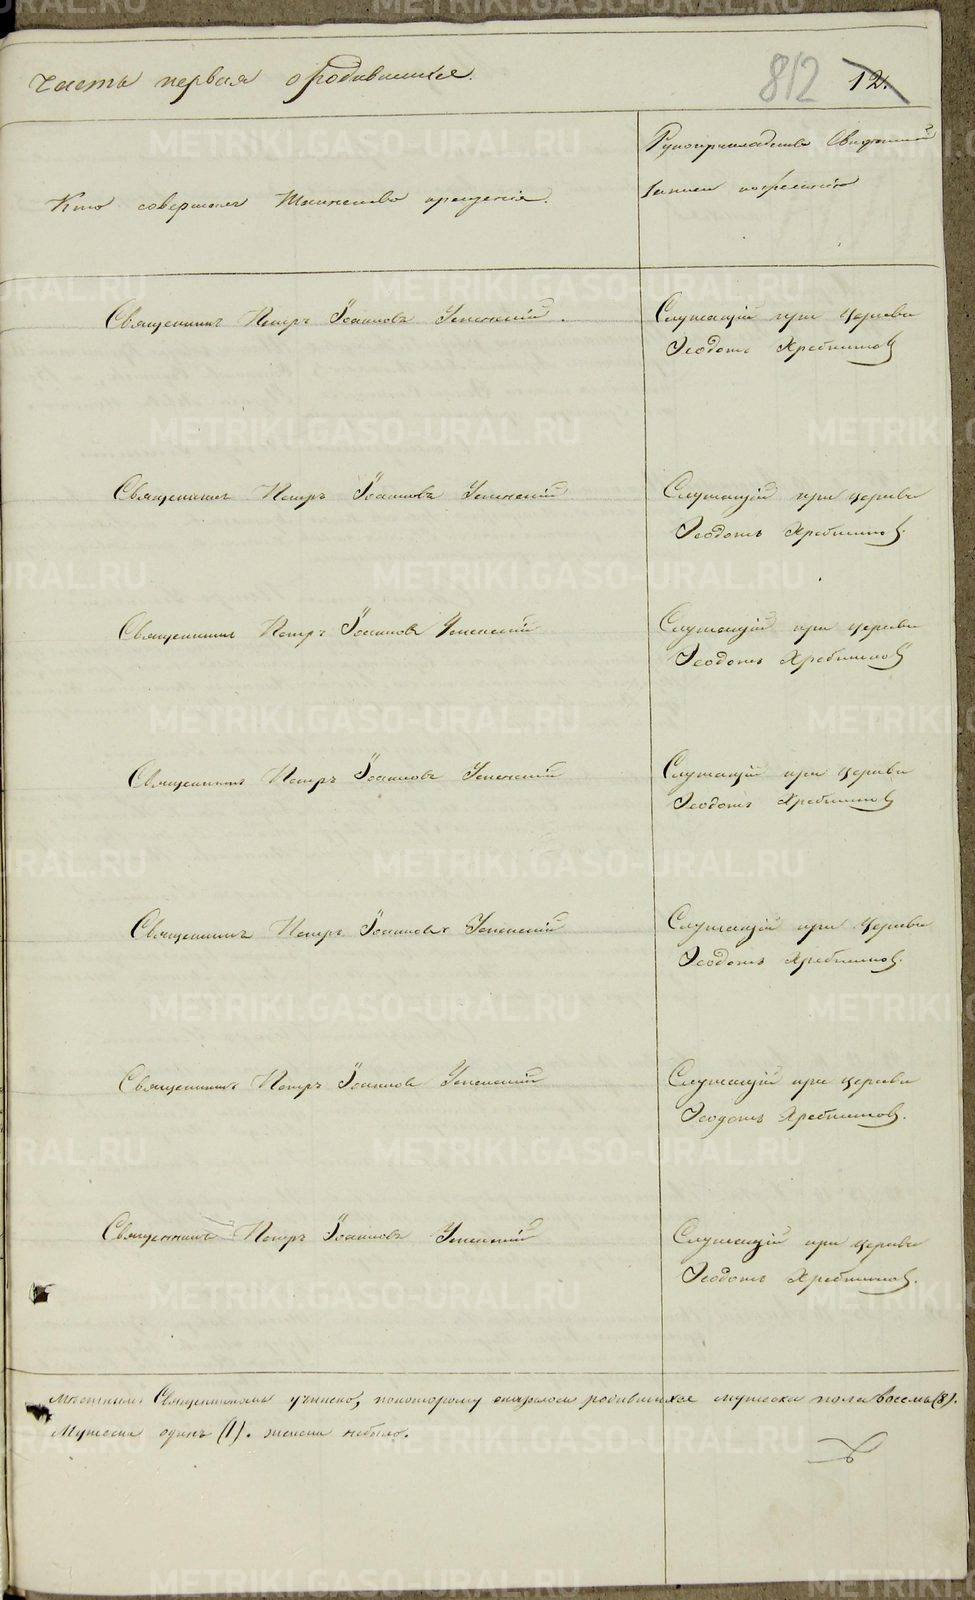 Часть первая о родившихся.
812 12.
Кто совершалъ Таинство крещенія.
Рукоприкладство Свидѣтелей
записи по желанію
Священникъ Петръ Іоанновъ Успенскій.
Служащій при церкви
Ѳеодотъ Хребтиковъ
Священникъ Петръ Іоанновъ Успенскій
Служащій при церкви
Ѳеодотъ Хребтиковъ.
Священникъ Петръ Іоанновъ Успенскій
Служащій при церкви
Ѳеодотъ Хребтиковъ
Священникъ Петръ Іоанновъ Успенскій
Служащій при церкви
Ѳеодотъ Хребтиковъ
Священникъ Петръ Іоанновъ Успенскій
Служащій при церкви
Ѳеодотъ Хребтиковъ.
Священникъ Петръ Іоанновъ Успенскій
Служащій при церкви
Ѳеодотъ Хребтиковъ.
Священникъ Петръ Іоанновъ Успенскій
Служащій при церкви
Ѳеодотъ Хребтиковъ.
мѣстнымъ Священникомъ учинено, по которому оказалось родившихся мужеска пола восемь (8).
Мужеска одинъ (1). женска небыло.
METRIKI.GASO-URAL.RU